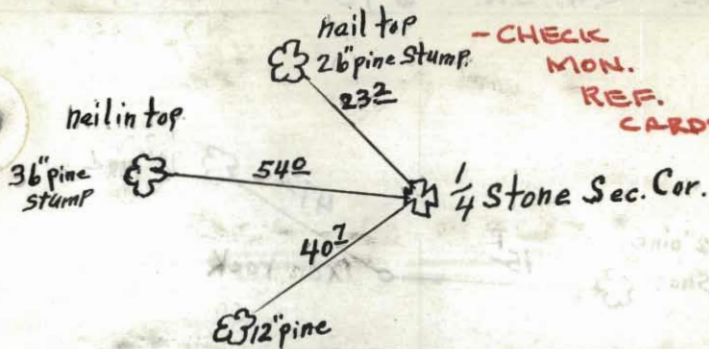 nail top
26" pine stump.
23²
- CHECK
MON.
REF.
CARDS
nail in top
36" pine
stump
54⁰
1/4 Stone Sec. Cor.
40⁷
12" pine